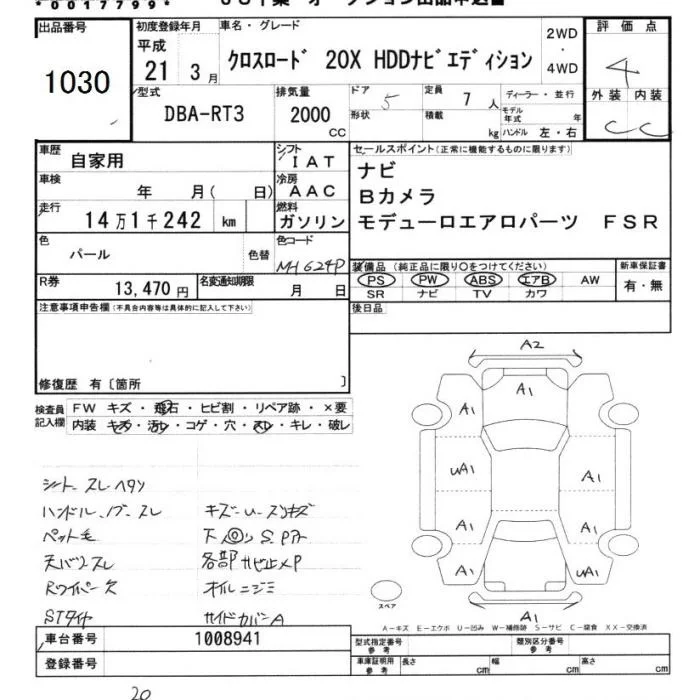 *0017799*
出品番号
1030
初度登録年月
平成
21 3月
車名・グレード
クロスロード 20X HDDナビエディション
2WD
・
4WD
評価点
4
外装 内装
C C
型式
DBA-RT3
排気量
2000
CC
ドア
5
形状
定員
7人
積載
kg
ディーラー・並行
モデル年式 年
ハンドル 左・右
車歴
自家用
シフト
IAT
車検
年 月( 日)
冷房
AAC
走行
14万1千242 km
燃料
ガソリン
色
パール
色替
色コード
NH624P
R券
13,470円
名変通知期限
月 日
セールスポイント(正常に機能するものに限ります)
ナビ
Bカメラ
モデューロエアロパーツ FSR
装備品(純正品に限り○をつけてください)
PS PW ABS エアB AW
SR ナビ TV カワ
新車保証書
有・無
後日品
注意事項申告欄(不具合内容等は具体的に記入して下さい)
修復歴 有〔箇所 〕
検査員記入欄
FW キズ・飛石・ヒビ割・リペア跡・×要
内装 キズ・汚レ・コゲ・穴・スレ・キレ・破レ
シート スレ ヘタリ
ハンドル、ノブ スレ
ペット毛
天バリスレ
Rワイパー欠
STタイヤ
キズ・U・スリキズ
下
各部サビ止メP
オイルニジミ
サイドカバーA
A2
A1
A1
UA1
A1
A1
A1
A1
UA1
A1
スペア
A-キズ E-エクボ U-凹み W-補修跡 S-サビ C-腐食 XX-交換済
車台番号
1008941
登録番号
型式指定番号
参考
類別区分番号
参考
車庫証明用
参考
長さ cm
幅 cm
高さ cm
20